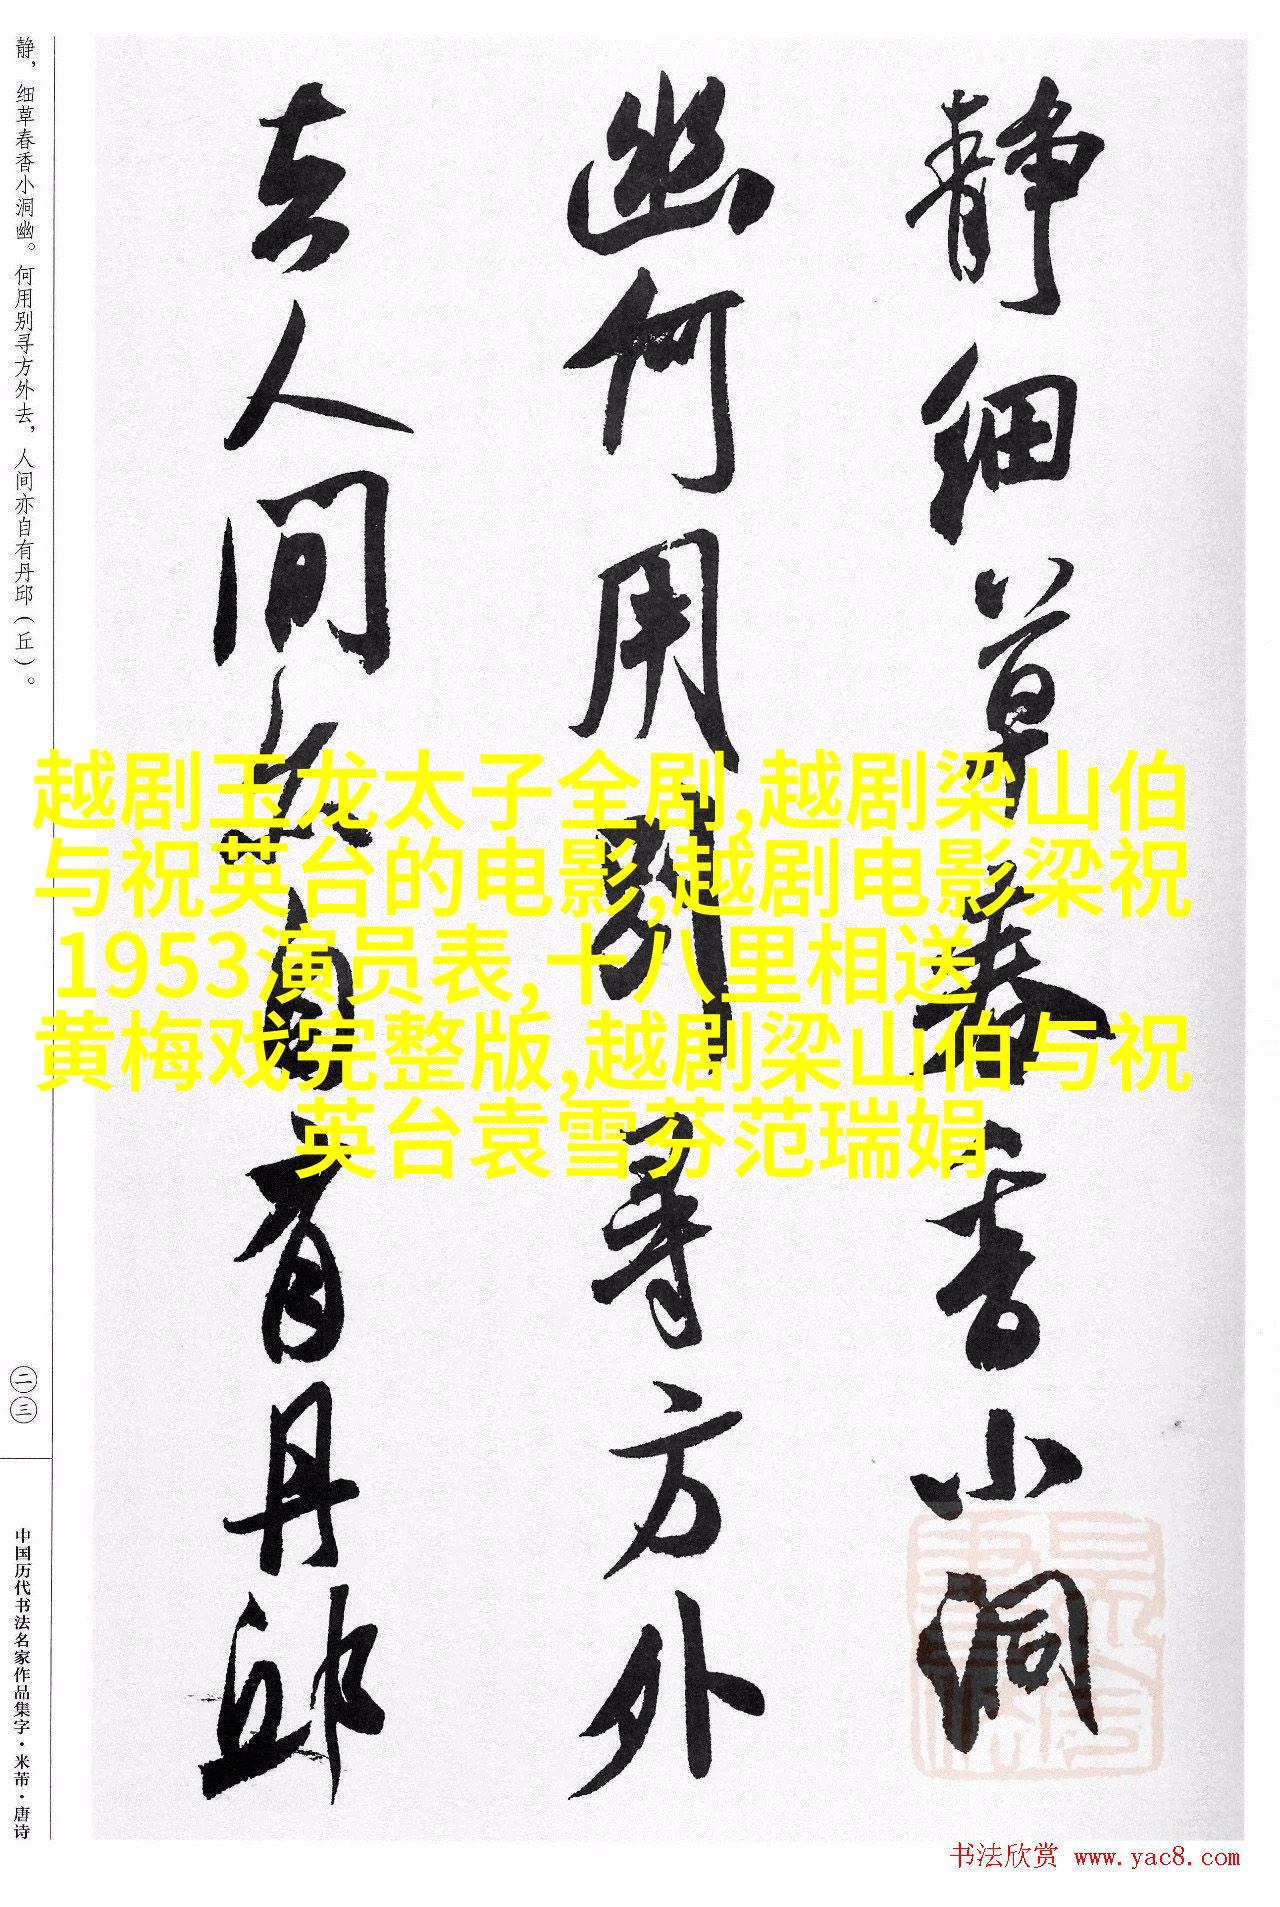 静，细草春香小洞幽。何用别寻方外去，人间亦自有丹邱（丘）。
静细草春香小洞
幽何用别寻方外
去人间亦自有丹邱
越剧玉龙太子全剧,越剧梁山伯
与祝英台的电影,越剧电影梁祝
1953演员表, 十八里相送
黄梅戏完整版,越剧梁山伯与祝
英台袁雪芬范瑞娟
二三
中国历代书法名家作品集字·米芾·唐诗
书法欣赏 www.yac8.com